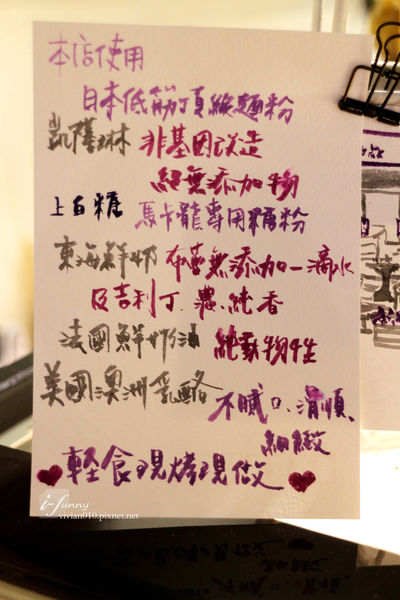 本店使用
日本低筋頂級麵粉
凱薩琳 非基因改造
絕無添加物
上白糖 馬卡龍專用糖粉
東海鮮奶 布蕾無添加一滴水
及吉利丁、濃純香
法國鮮奶油 純動物性
美國澳洲乳酪
不膩口、滑順、
細緻
輕食現烤現做
i-funny
vivian010.pixnet.net